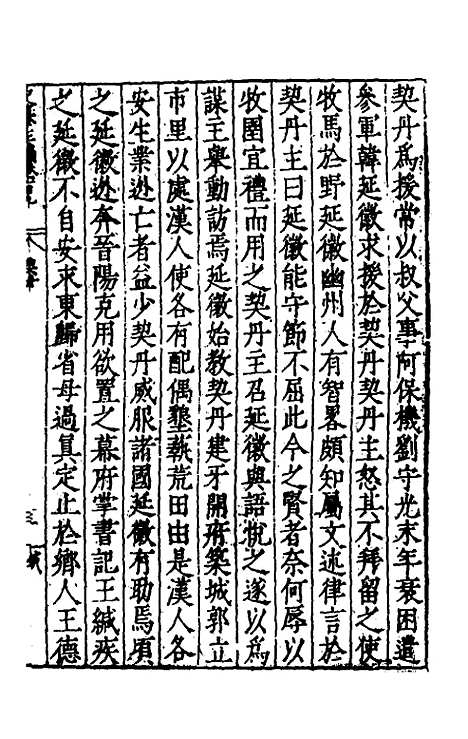 契丹為援常以叔父事阿保機劉守光末年衰困遣
參軍韓延徽求援於契丹契丹主怒其不拜留之使
牧馬於野延徽幽州人有智畧頗知屬文述律言於
契丹主曰延徽能守節不屈此今之賢者奈何辱以
牧圉宜禮而用之契丹主召延徽與語悅之遂以為
謀主舉動訪焉延徽始教契丹建牙開府築城郭立
市里以處漢人使各有配偶墾蓺荒田由是漢人各
安生業逃亡者益少契丹威服諸國延徽有助焉頃
之延徽逃奔晉陽克用欲置之幕府掌書記王緘疾
之延徽不自安求東歸省母過真定止於鄉人王德